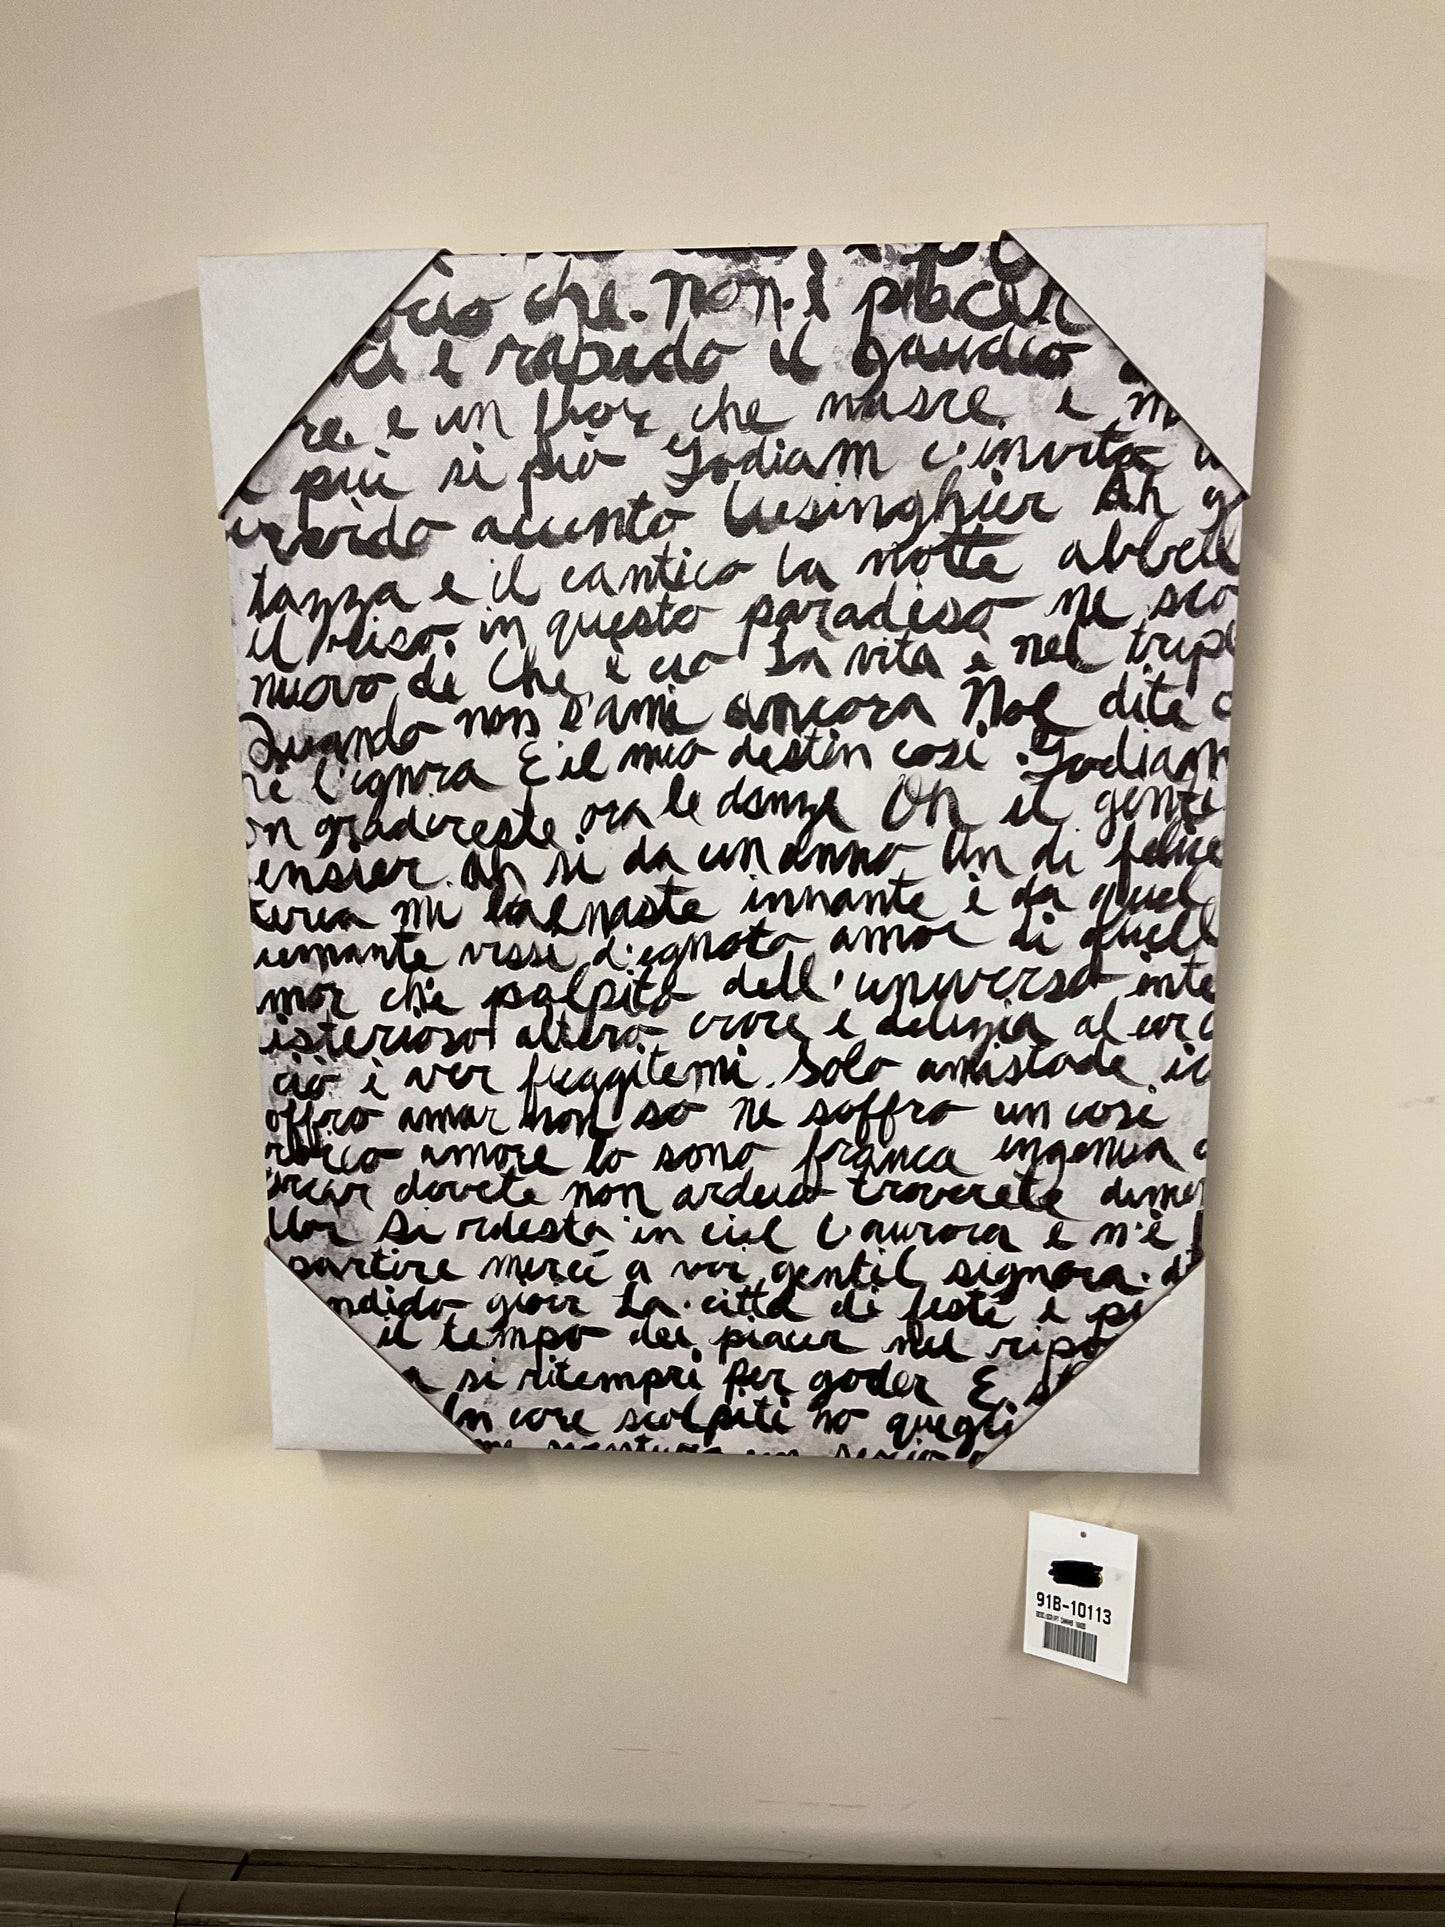 che. non è piacer
è rapido il gaudio
re. è un fior che nasce e m
più si più Godiam c'invita
ervido accento Lusinghier Ah g
tazza e il cantico la notte abbell
il riso. in questo paradiso ne sco
nuovo di Che è ciò La vita è nel trip
Quando non s'ami ancora Nol dite
l'ignora È il mio destin così. Godiam
on gradireste ora le danze Oh il genti
ensier. Ah sì da un anno Un dì felice
terea mi balenaste innante e da quel
remante vissi d'ignoto amor di quell
mor ch'è palpito dell'universo inte
isterioso altero croce e delizia al cor
ciò è ver fuggitemi. Solo amistade io
offro amar non so ne soffro un così
amore Io sono franca ingenua
ercar dovete non arduo troverete dimen
llor Si ridesta in ciel l'aurora e n'è
partire mercè a voi gentil signora. di
ndido gioir La città di feste è pi
il tempo dei piacer nel ripo
si ritempri Per goder E
In core scolpiti ho quegli
un serio
91B-10113